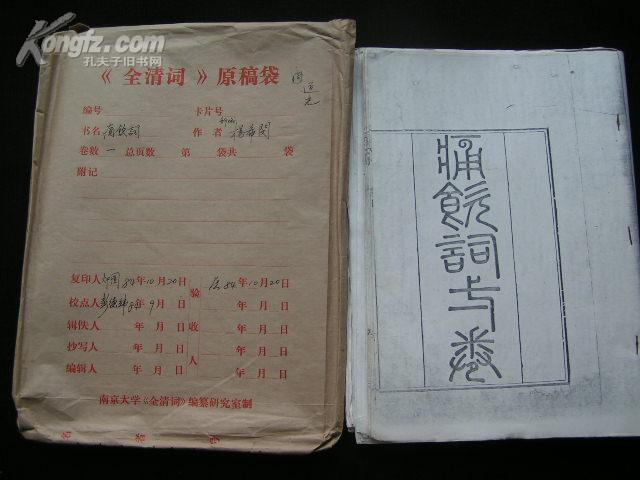 Kongfz.com
孔夫子旧书网
《全清词》原稿袋
道光
编号 卡片号
书名 作者 杨希闵
卷数 一 总页数 第 袋共 袋
附记
复印人 84年10月20日 验收人 84年10月20日
校点人 年9月 日 年 月 日
辑佚人 年 月 日 年 月 日
抄写人 年 月 日 年 月 日
编辑人 年 月 日 年 月 日
南京大学《全清词》编纂研究室制
詞